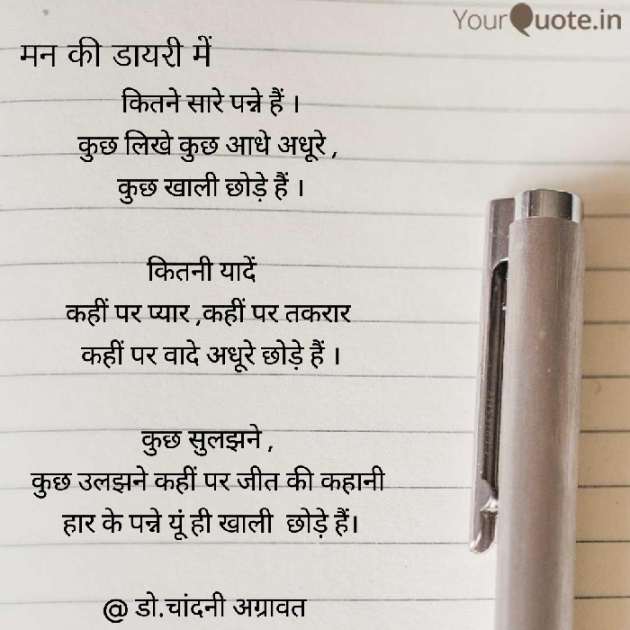 YourQuote.in
मन की डायरी में
कितने सारे पन्ने हैं ।
कुछ लिखे कुछ आधे अधूरे ,
कुछ खाली छोड़े हैं ।
कितनी यादें
कहीं पर प्यार ,कहीं पर तकरार
कहीं पर वादे अधूरे छोड़े हैं ।
कुछ सुलझने ,
कुछ उलझने कहीं पर जीत की कहानी
हार के पन्ने यूं ही खाली छोड़े हैं।
@ डो.चांदनी अग्रावत